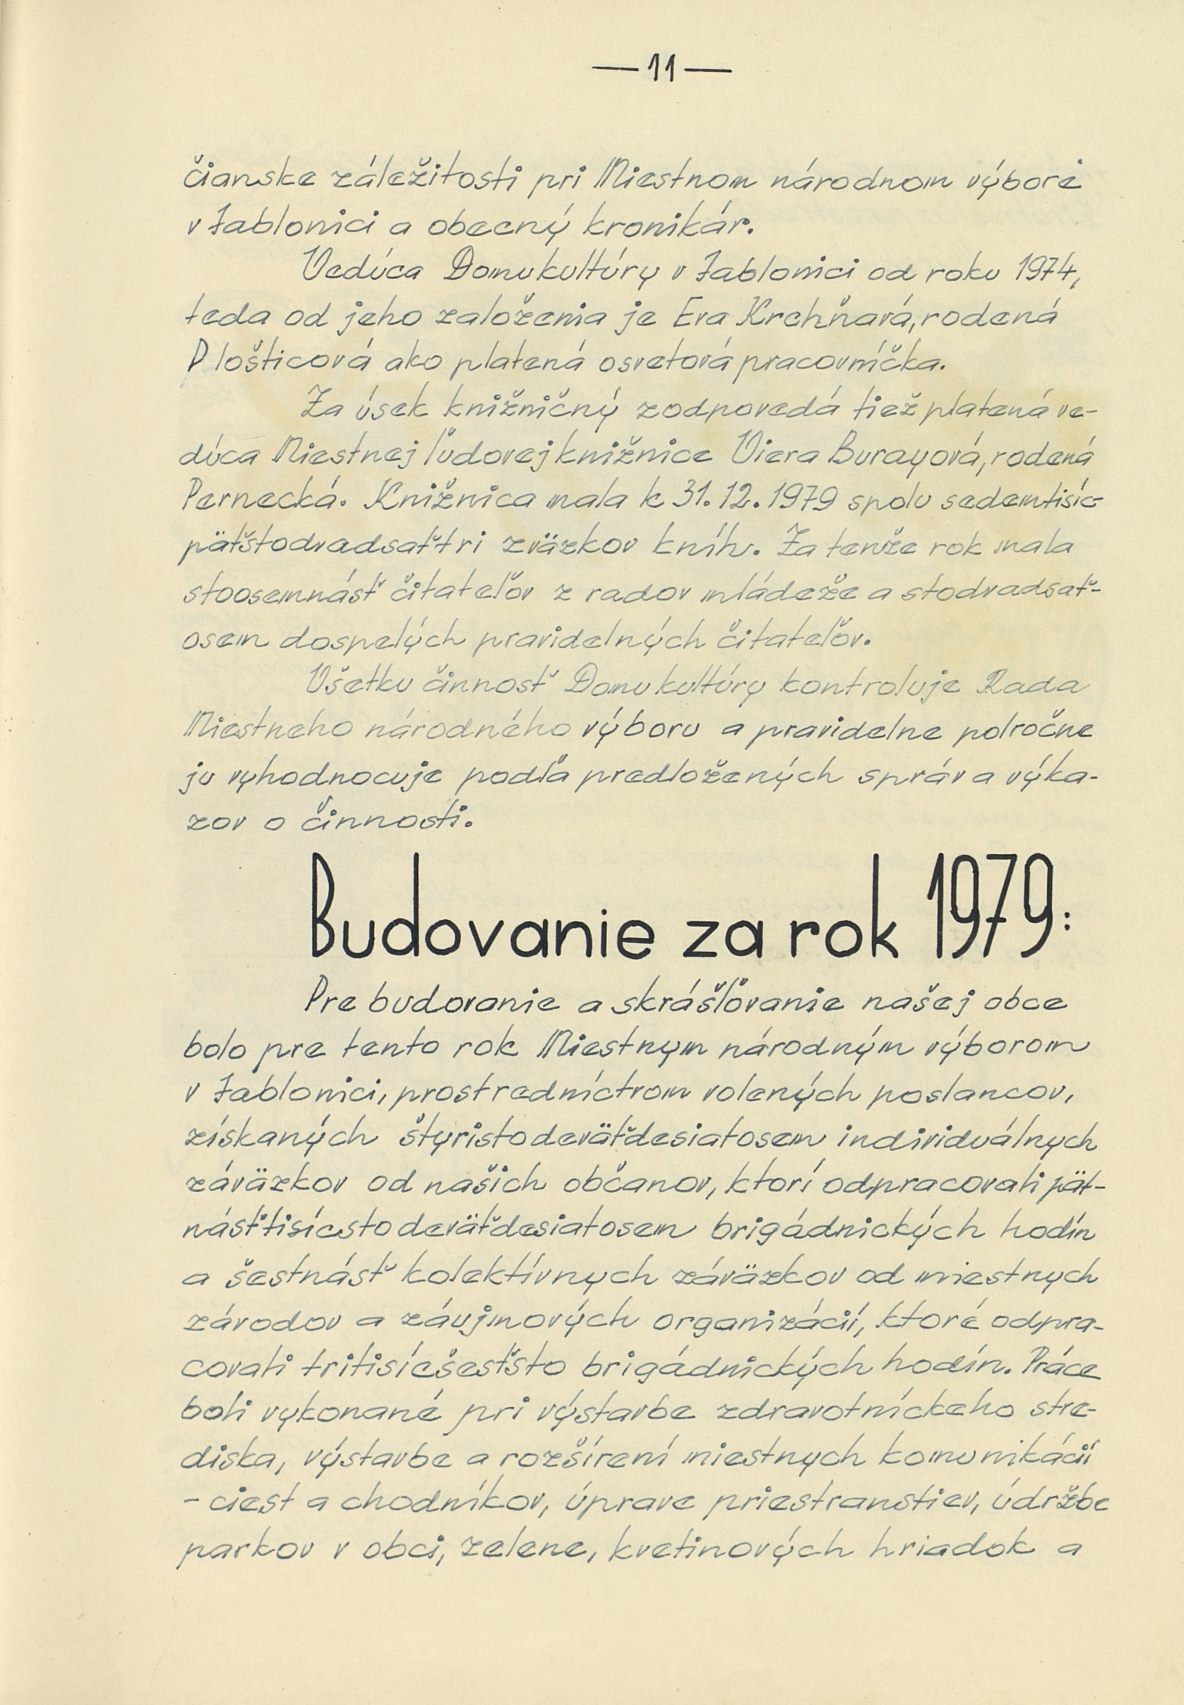 — 11 —
čianske záležitosti pri Miestnom národnom výbore
v Jablonici a obecný kronikár.
Vedúca Domu kultúry v Jablonici od roku 1974,
teda od jeho založenia je Eva Krchňavá, rodená
Plošticová ako platená osvetová pracovníčka.
Za úsek knižničný zodpovedá tiež platená ve-
dúca Miestnej ľudovej knižnice Viera Burayová, rodená
Pernecká. Knižnica mala k 31.12.1979 spolu sedemtisíc-
päťstodvadsaťtri zväzkov kníh. Za tenže rok mala
stoosemnásť čitateľov z radov mládeže a stodvadsať-
osem dospelých pravidelných čitateľov.
Všetku činnosť Domu kultúry kontroluje Rada
Miestneho národného výboru a pravidelne polročne
ju vyhodnocuje podľa predložených správ a výka-
zov o činnosti.
Budovanie za rok 1979:
Pre budovanie a skrášľovanie našej obce
bolo pre tento rok Miestnym národným výborom
v Jablonici, prostredníctvom volených poslancov,
získaných štyristodeväťdesiatosem individuálnych
záväzkov od našich občanov, ktorí odpracovali pät-
násťtisícstodeväťdesiatosem brigádnických hodín
a šestnásť kolektívnych záväzkov od miestnych
závodov a záujmových organizácií, ktoré odpra-
covali tritisícšesťsto brigádnických hodín. Práce
boli vykonané pri výstavbe zdravotníckeho stre-
diska, výstavbe a rozšírení miestnych komunikácií
- ciest a chodníkov, úprave priestranstiev, údržbe
parkov v obci, zelene, kvetinových hriadok a